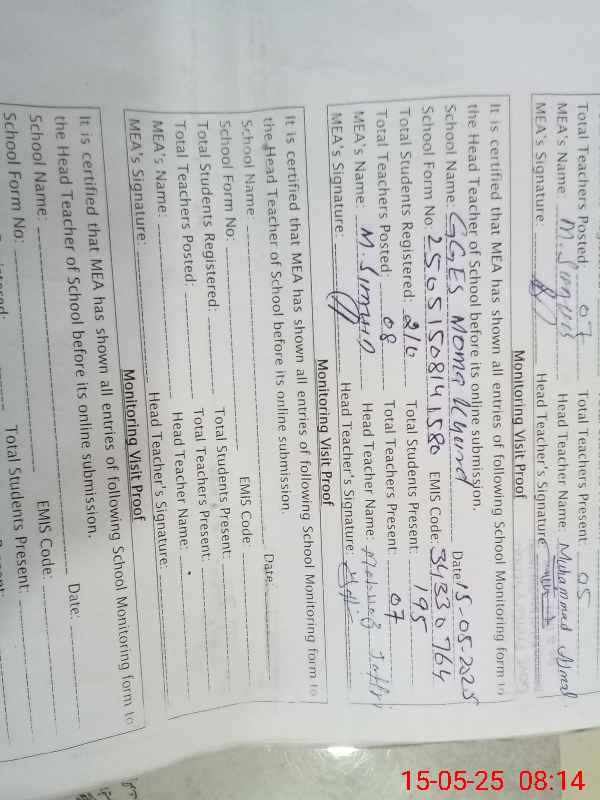 Total Teachers Posted: 07 Total Teachers Present: 05
MEA's Name: Head Teacher Name: Muhammad
MEA's Signature: Head Teacher's Signature
Monitoring Visit Proof
It is certified that MEA has shown all entries of following School Monitoring form to
the Head Teacher of School before its online submission.
School Name: GGES Moma Khurd Date: 15-05-2025
School Form No: 25051508141580 EMIS Code: 34330764
Total Students Registered: Total Students Present: 195
Total Teachers Posted: 08 Total Teachers Present: 07
MEA's Name: M. Head Teacher Name:
MEA's Signature: Head Teacher's Signature:
Monitoring Visit Proof
It is certified that MEA has shown all entries of following School Monitoring form to
the Head Teacher of School before its online submission.
School Name Date:
School Form No: EMIS Code:
Total Students Registered: Total Students Present:
Total Teachers Posted: Total Teachers Present:
MEA's Name: Head Teacher Name:
MEA's Signature: Head Teacher's Signature:
Monitoring Visit Proof
It is certified that MEA has shown all entries of following School Monitoring form to
the Head Teacher of School before its online submission.
School Name: Date:
School Form No: EMIS Code:
Total Students Present:
15-05-25 08:14